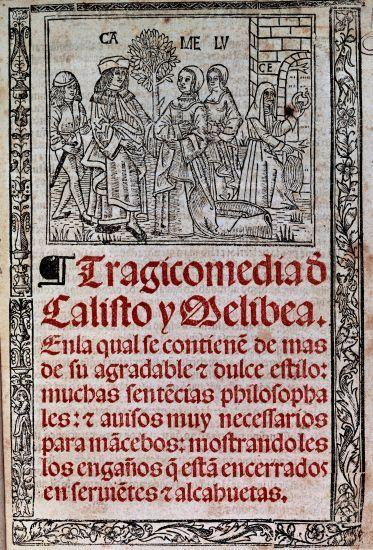 CA ME LV
CE
¶ Tragicomedia ð
Calisto y Melibea.
Enla qual se contienẽ de mas
de su agradable ⁊ dulce estilo:
muchas sentẽcias philosopha
les: ⁊ auisos muy necessarios
para mãcebos: mostrandoles
los engaños q̃ estã encerrados
en seruiẽtes ⁊ alcahuetas.